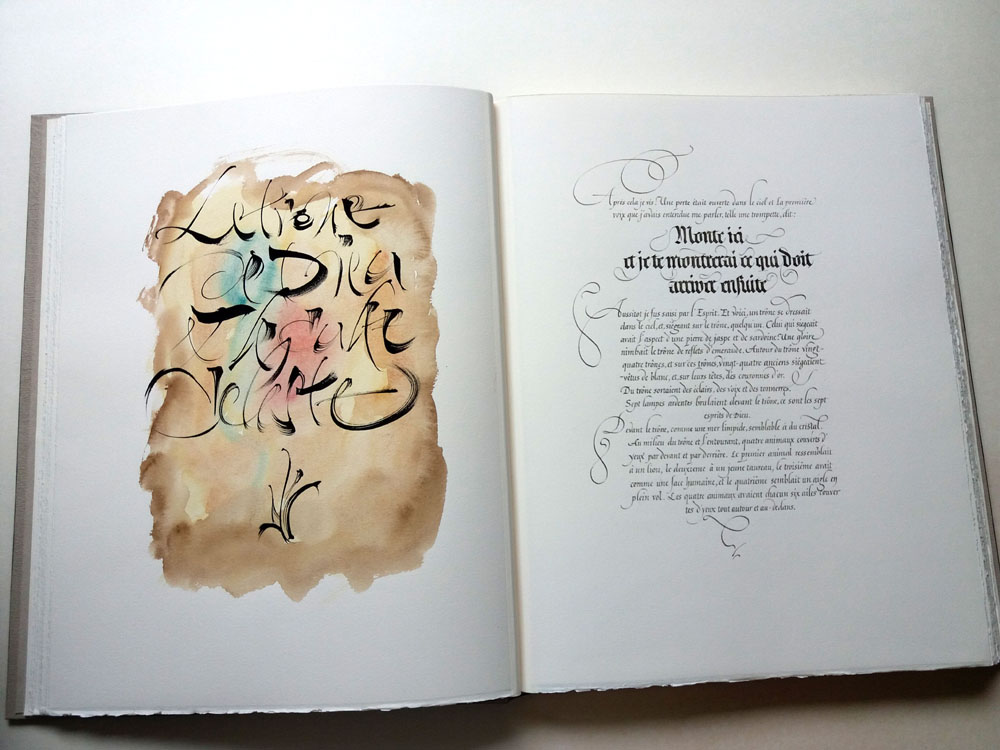 Le trône
de Dieu
et la cour
céleste
Après cela je vis. Une porte était ouverte dans le ciel et la première
voix que j'avais entendue me parler, telle une trompette, dit:
Monte ici
et je te montrerai ce qui doit
arriver ensuite
Aussitôt je fus saisi par l'Esprit. Et voici, un trône se dressait
dans le ciel, et, siégeant sur le trône, quelqu'un. Celui qui siégeait
avait l'aspect d'une pierre de jaspe et de sardoine. Une gloire
nimbait le trône de reflets d'émeraude. Autour du trône vingt-
quatre trônes, et sur ces trônes, vingt-quatre anciens siégeaient
vêtus de blanc, et, sur leurs têtes, des couronnes d'or.
Du trône sortaient des éclairs, des voix et des tonnerres.
Sept lampes ardentes brûlaient devant le trône, ce sont les sept
esprits de Dieu.
Devant le trône, comme une mer limpide, semblable à du cristal.
Au milieu du trône et l'entourant, quatre animaux couverts d'
yeux par devant et par derrière. Le premier animal ressemblait
à un lion, le deuxième à un jeune taureau, le troisième avait
comme une face humaine, et le quatrième semblait un aigle en
plein vol. Les quatre animaux avaient chacun six ailes couver
tes d'yeux tout autour et au-dedans.